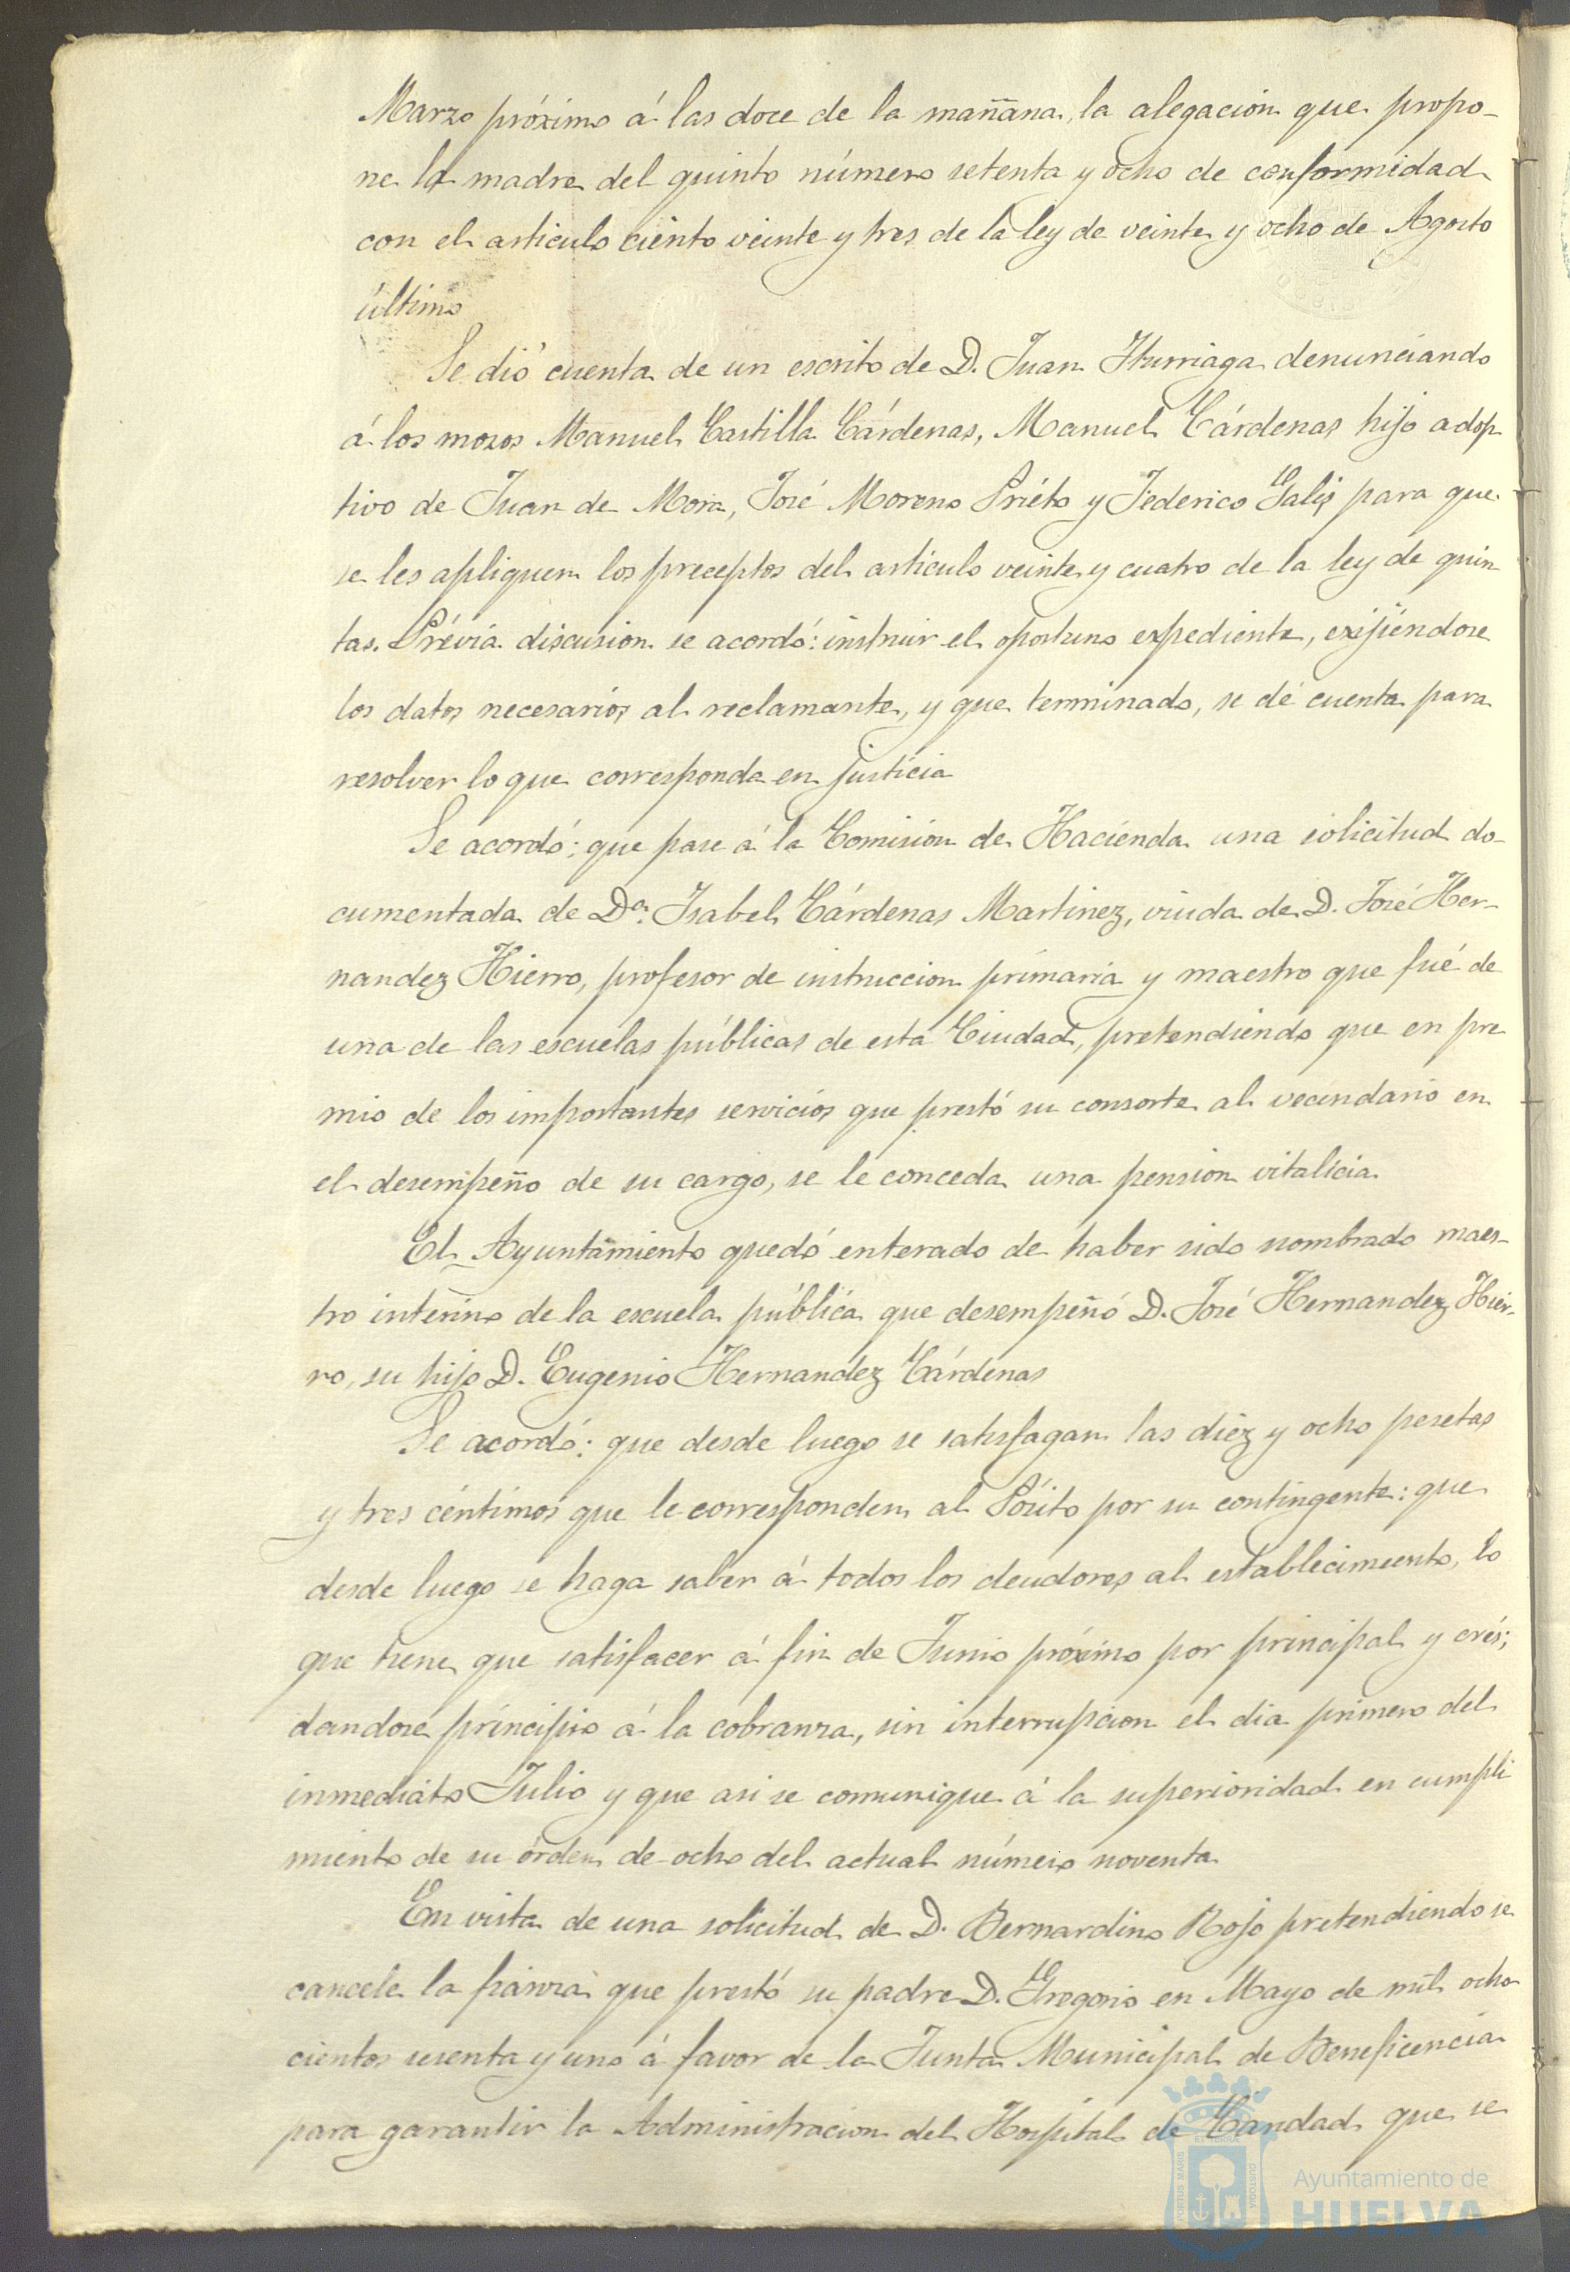 Marzo próximo á las doce de la mañana, la alegación que propo-
ne la madre del quinto número setenta y ocho de conformidad
con el articulo ciento veinte y tres de la ley de veinte y ocho de Agosto
último
Se dió cuenta de un escrito de D. Juan Iturriaga denunciando
á los mozos Manuel Castilla Cárdenas, Manuel Cárdenas hijo adop
tivo de Juan de Mora, José Moreno Priéto y Federico Galis para que
se les apliquen los preceptos del articulo veinte y cuatro de la ley de quin
tas. Prévia discusion se acordó: instruir el oportuno expediente, exijiéndose
los datos necesarios al reclamante, y que terminado, se dé cuenta para
resolver lo que corresponda en justicia
Se acordó: que pase á la Comision de Hacienda una solicitud do-
cumentada de Dª. Isabel Cárdenas Martinez, viuda de D. José Her-
nandez Hierro, profesor de instruccion primaria y maestro que fué de
una de las escuelas públicas de esta Ciudad, pretendiendo que en pre
mio de los importantes servicios que prestó su consorte al vecindario en
el desempeño de su cargo, se le conceda una pension vitalicia
El Ayuntamiento quedó enterado de haber sido nombrado maes-
tro interino de la escuela pública que desempeñó D. José Hernandez Hier-
ro, su hijo D. Eugenio Hernandez Cárdenas
Se acordó: que desde luego se satisfagan las diez y ocho pesetas
y tres céntimos que le corresponden al Pósito por su contingente: que
desde luego se haga saber á todos los deudores al establecimiento, lo
que tiene que satisfacer á fin de Junio próximo por principal y crés;
dandose principio á la cobranza, sin interrupcion el dia primero del
inmediato Julio y que asi se comunique á la superioridad en cumpli
miento de su órden de ocho del actual número noventa
En vista de una solicitud de D. Bernardino Rojo pretendiendo se
cancele la fianza que prestó su padre D. Gregorio en Mayo de mil ocho
cientos sesenta y uno á favor de la Junta Municipal de Beneficencia
para garantir la Administracion del Hospital de Caridad que se
Ayuntamiento de
HUELVA
PORTUS MARIS
CUSTODIA